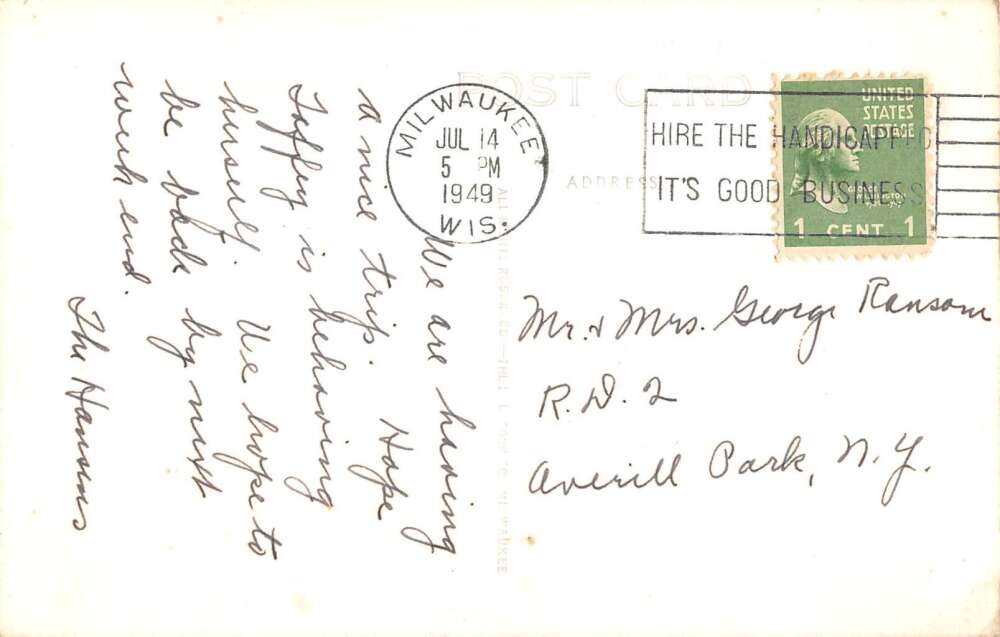 POST CARD
ADDRESS
MILWAUKEE
JUL 14
5 PM
1949
WIS.
HIRE THE HANDICAPPED
IT'S GOOD BUSINESS
UNITED
STATES
POSTAGE
GEORGE
WASHINGTON
1 CENT 1
We are having
a nice trip. Hope
Taffy is behaving
hisself. We hope to
be back by next
week end.
The Hansens
Mr. & Mrs. George Ransom
R.D. 2
Averill Park, N.Y.
MILWAUKEE